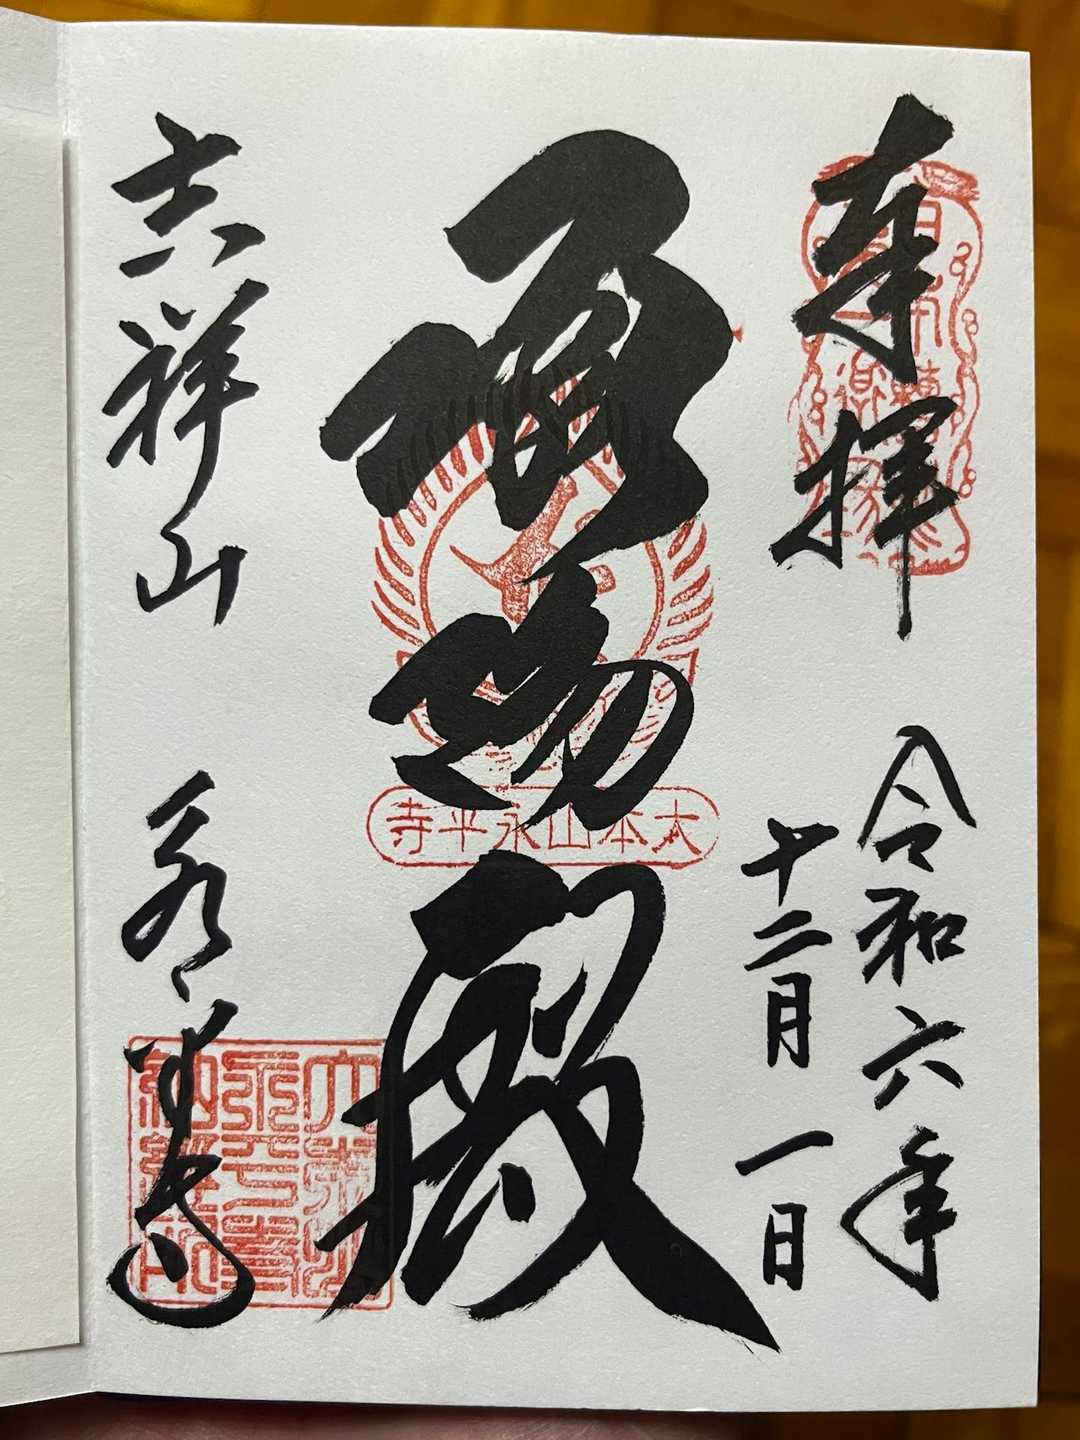 奉拝
令和六年
十二月一日
承陽殿
大本山永平寺
吉祥山
永平寺